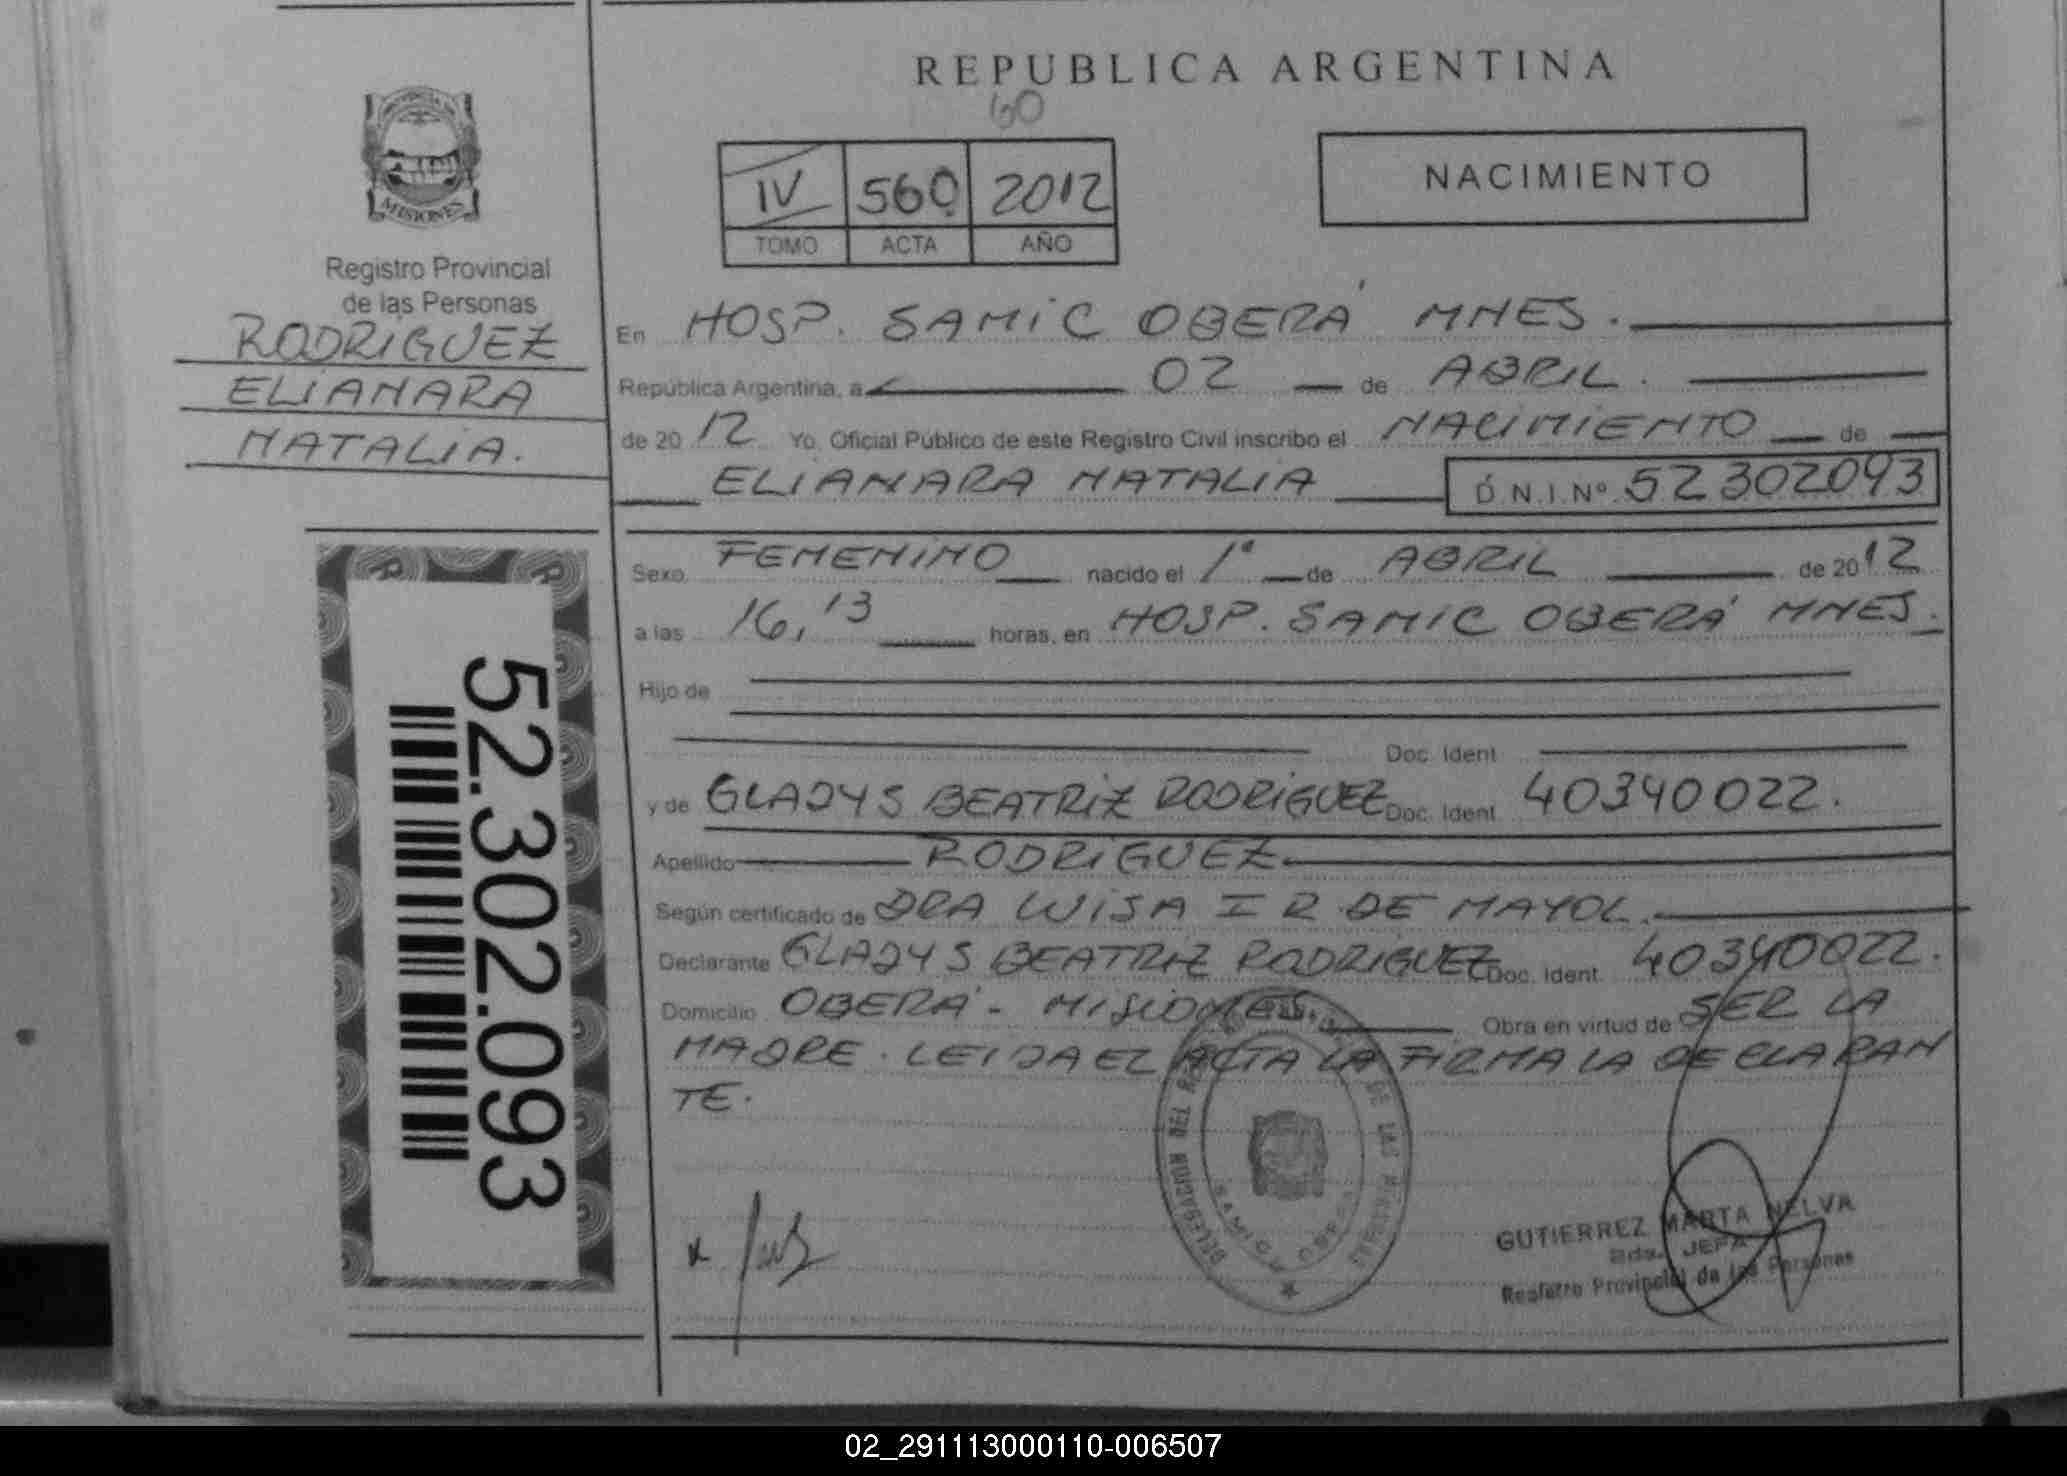 REPUBLICA ARGENTINA
60
PROVINCIA DE
MISIONES
Registro Provincial
de las Personas
RODRIGUEZ
ELIANARA
NATALIA.
IV 560 2012
TOMO ACTA AÑO
NACIMIENTO
En HOSP. SAMIC OBERÁ MNES.
República Argentina, a 02 de ABRIL.
de 2012 Yo, Oficial Público de este Registro Civil inscribo el NACIMIENTO de
ELIANARA NATALIA D.N.I.Nº 52302093
Sexo FEMENINO nacido el 1º de ABRIL de 2012
a las 16,13 horas, en HOSP. SAMIC OBERÁ MNES.
Hijo de
Doc. Ident
y de GLADYS BEATRIZ RODRIGUEZ Doc. Ident. 40340022.
Apellido RODRIGUEZ
Según certificado de DRA LUISA I R DE MAYOL.
Declarante GLADYS BEATRIZ RODRIGUEZ Doc. Ident. 40340022.
Domicilio OBERÁ - MISIONES. Obra en virtud de SER LA
MADRE. LEIDA EL ACTA LA FIRMA LA DECLARAN
TE.
52.302.093
DELEGACION DEL DE LAS PERSONAS
SAMIC OBERA
GUTIERREZ MARTA NELVA
2da. JEFA
Registro Provincial de las Personas
02_291113000110-006507